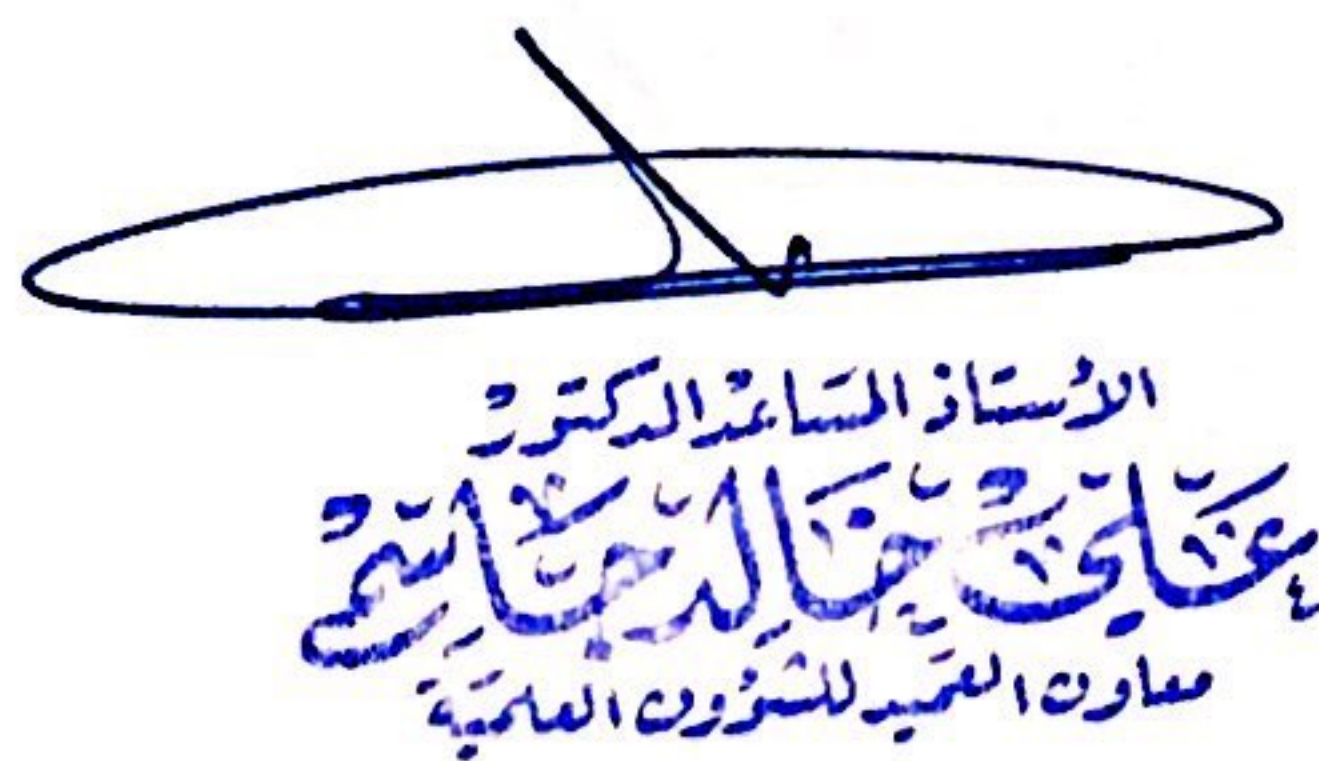 الأستاذ المساعد الدكتور
علي خالد حاتم
معاون العميد للشؤون العلمية